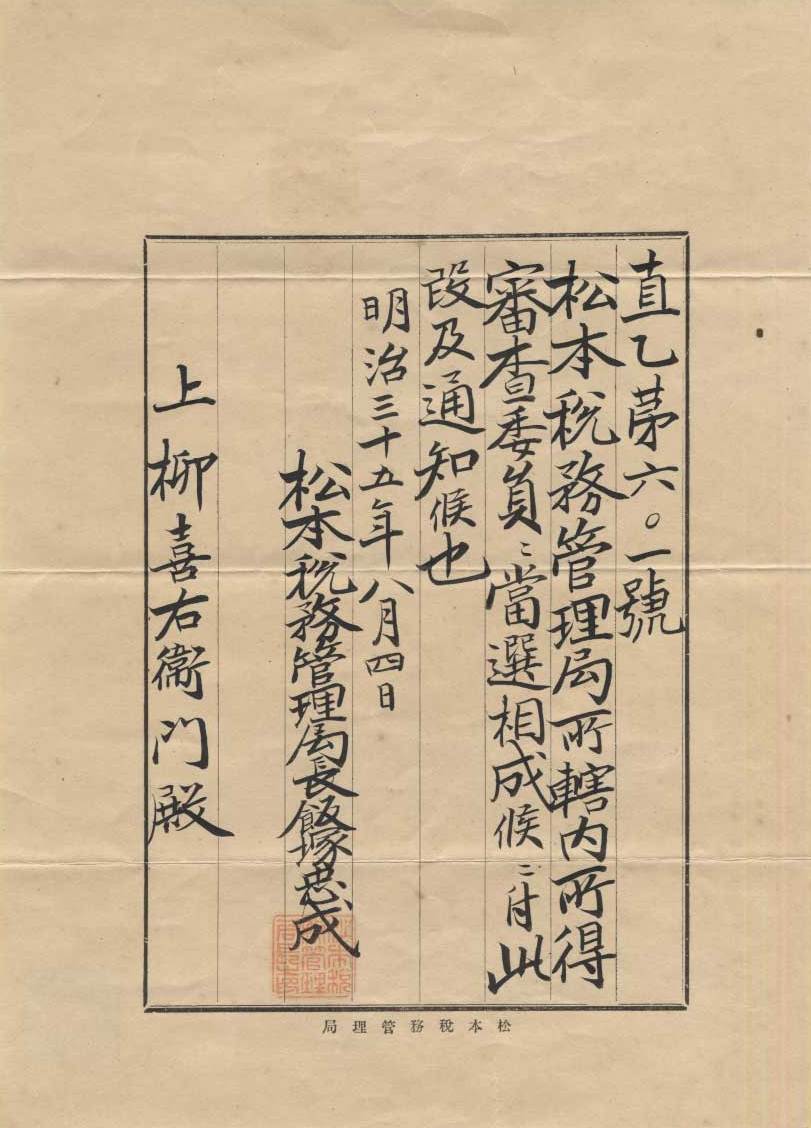 直乙第六〇一號
松本税務管理局所轄内所得
審査委員ニ當選相成候ニ付此
段及通知候也
明治三十五年八月四日
松本税務管理局長飯塚忠成
上柳喜右衛門殿
松本税務管理局